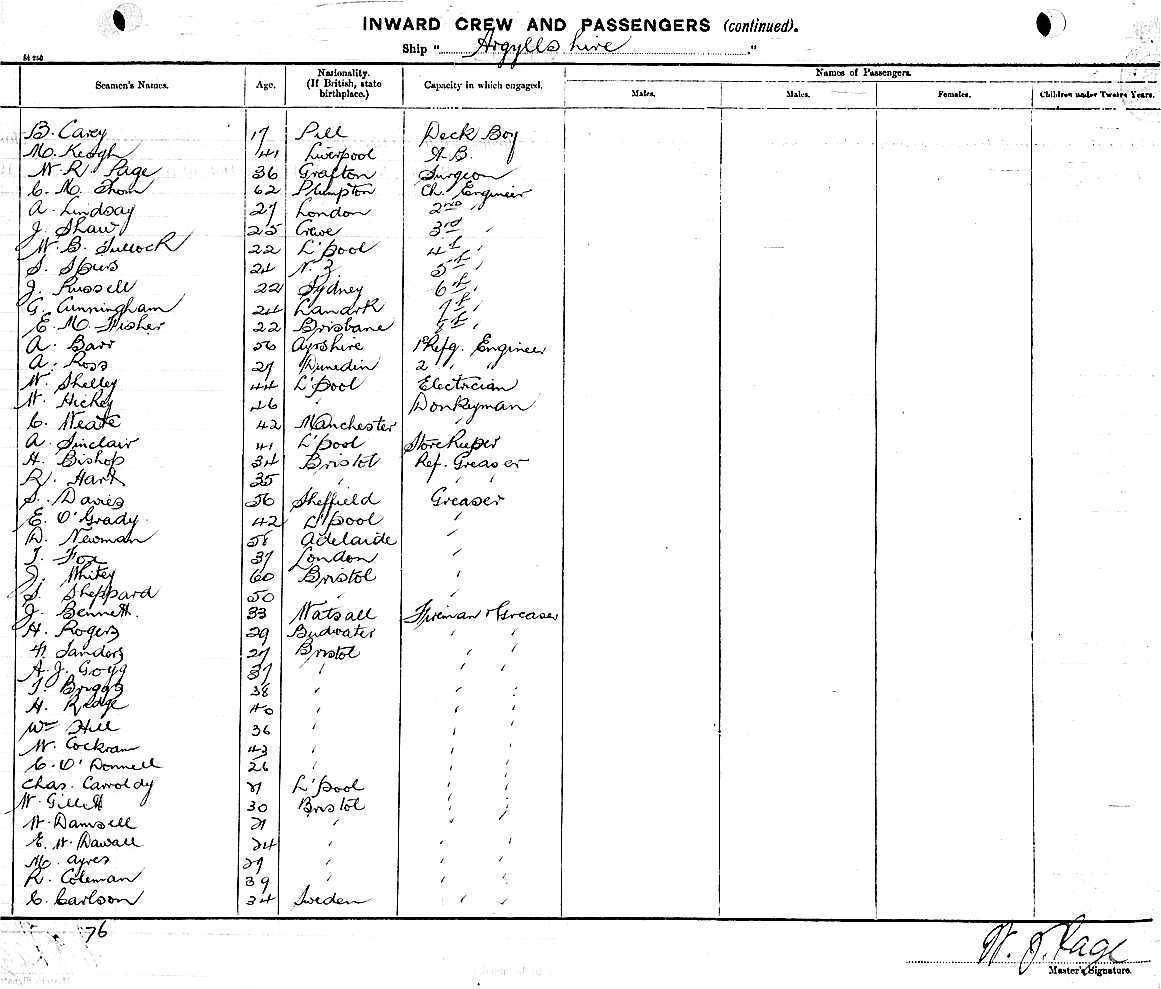 INWARD CREW AND PASSENGERS (continued).
Ship "Argyllshire"
Seamen's Names. Age. Nationality. (If British, state birthplace.) Capacity in which engaged. Names of Passengers.
Males. Males. Females. Children under Twelve Years.
B. Carey 17 Pill Deck Boy
M. Keogh 41 Liverpool A.B.
W. R. Page 36 Grafton Surgeon
C. M. Thom 62 Plumpton Ch. Engineer
A. Lindsay 27 London 2nd "
J. Shaw 25 Crewe 3rd "
W. B. Tullock 22 L'pool 4th "
S. Spurs 24 N. Z 5th "
J. Russell 22 Sydney 6th "
G. Cunningham 24 Lanark 7th "
E. M. Fisher 22 Brisbane 8th "
A. Barr 56 Ayrshire 1st Refg. Engineer
A. Ross 27 Dunedin 2 " "
W. Shelley 44 L'pool Electrician
W. Hickey 46 " Donkeyman
C. Neate 42 Manchester "
A. Sinclair 41 L'pool Storekeeper
H. Bishop 34 Bristol Ref. Greaser
R. Hark 35 " " "
S. Davies 56 Sheffield Greaser
E. O'Grady 42 L'pool "
D. Newman 58 Adelaide "
T. Fox 37 London "
J. Whitey 60 Bristol "
S. Sheppard 50 " "
J. Bennett 33 Walsall Fireman & Greaser
H. Rogers 29 Budwater " "
H. Sanders 27 Bristol " "
A. J. Gogg 37 " " "
T. Briggs 38 " " "
H. Redge 40 " " "
Wm Hill 36 " " "
W. Cockram 43 " " "
C. O'Donnell 26 " " "
Chas. Carroldy 21 L'pool " "
W. Gillett 30 Bristol " "
W. Damsell 21 " " "
E. W. Dawall 24 " " "
M. Ayres 27 " " "
R. Coleman 39 " " "
C. Carlson 34 Sweden " "
76
W. J. Page
Master's Signature.